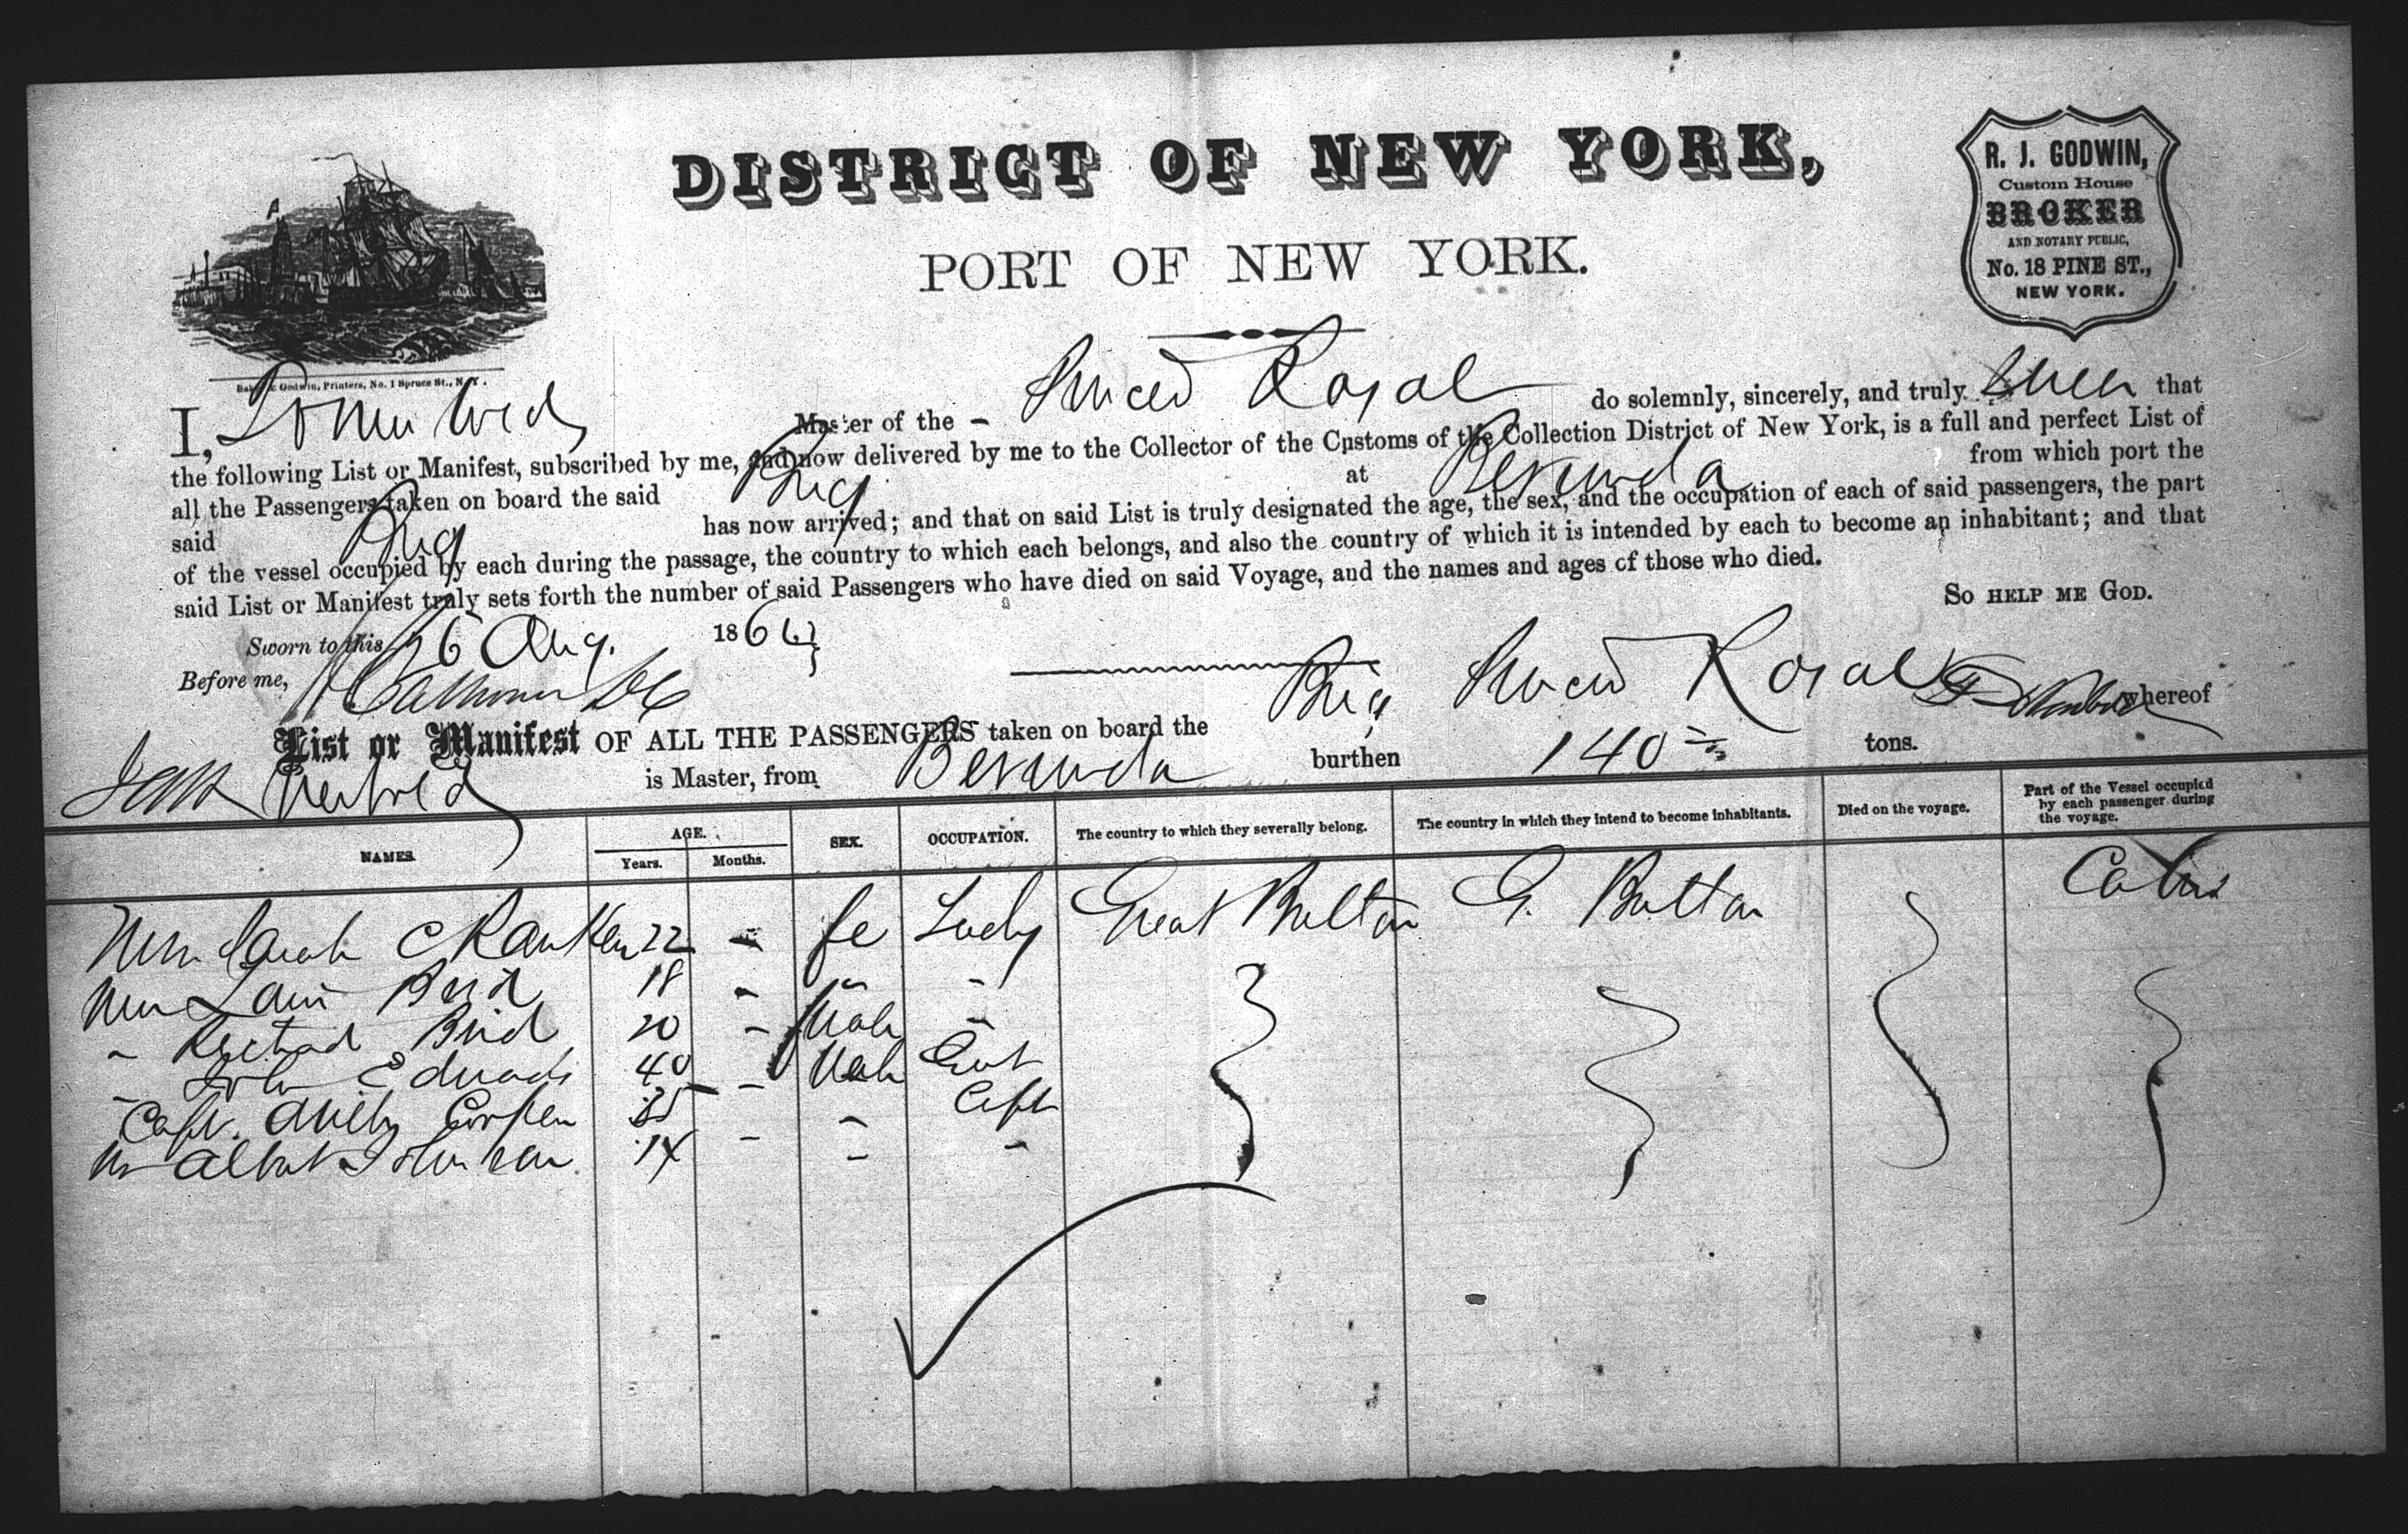 DISTRICT OF NEW YORK,
PORT OF NEW YORK.
R. J. GODWIN,
Custom House
BROKER
AND NOTARY PUBLIC,
No. 18 PINE ST.,
NEW YORK.
Baker & Godwin, Printers, No. 1 Spruce St., N. Y.
I, Master of the Royal do solemnly, sincerely, and truly swear that
the following List or Manifest, subscribed by me, and now delivered by me to the Collector of the Customs of the Collection District of New York, is a full and perfect List of
all the Passengers taken on board the said Brig at Bermuda from which port the
said Brig has now arrived; and that on said List is truly designated the age, the sex, and the occupation of each of said passengers, the part
of the vessel occupied by each during the passage, the country to which each belongs, and also the country of which it is intended by each to become an inhabitant; and that
said List or Manifest truly sets forth the number of said Passengers who have died on said Voyage, and the names and ages of those who died.
So HELP ME GOD.
Sworn to this Aug. 1866
Before me,
List or Manifest OF ALL THE PASSENGERS taken on board the Brig Royal whereof
is Master, from Bermuda burthen 140 tons.
NAMES. AGE. SEX. OCCUPATION. The country to which they severally belong. The country in which they intend to become inhabitants. Died on the voyage. Part of the Vessel occupied by each passenger during the voyage.
Years. Months.
Sarah C 22 - fe Lady Great Brittan G. Brittan Cabin
Bird 18 - " -
" Bird 20 - Male -
- John Edwards 40 - Male
Capt. 35 - - Capt
Mr Albert 14 - - -